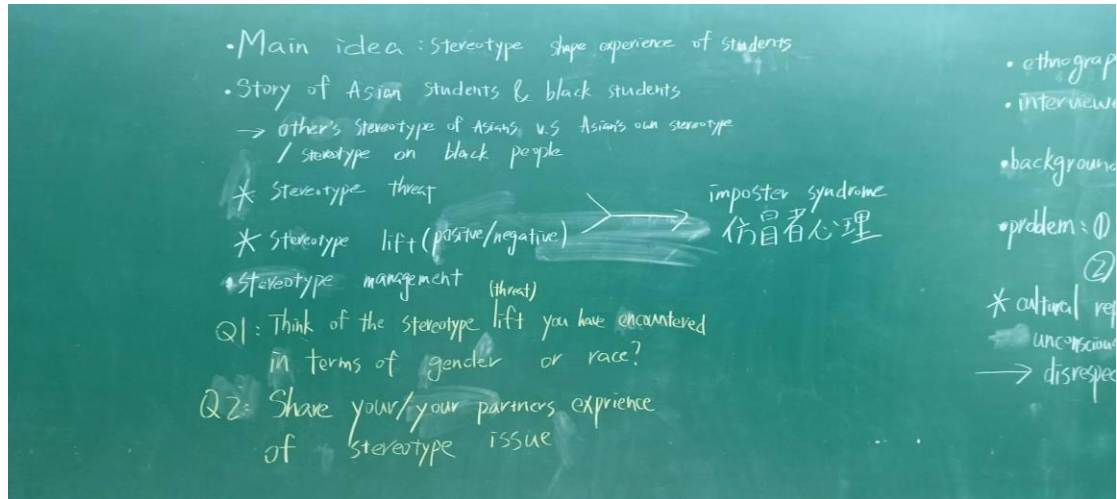 •Main idea : Stereotype shape experience of students
•Story of Asian students & black students
→ other's stereotype of Asians v.s Asian's own stereotype
/ stereotype on black people
* Stereotype threat
* Stereotype lift (positive/negative)
imposter syndrome
仿冒者心理
•Stereotype management
(threat)
Q1: Think of the stereotype lift you have encountered
in terms of gender or race?
Q2: Share your/your partners exprience
of stereotype issue
• ethnograp
• interviewe
•background
•problem: ①
②
* cultural rep
unconscious
→ disrespec